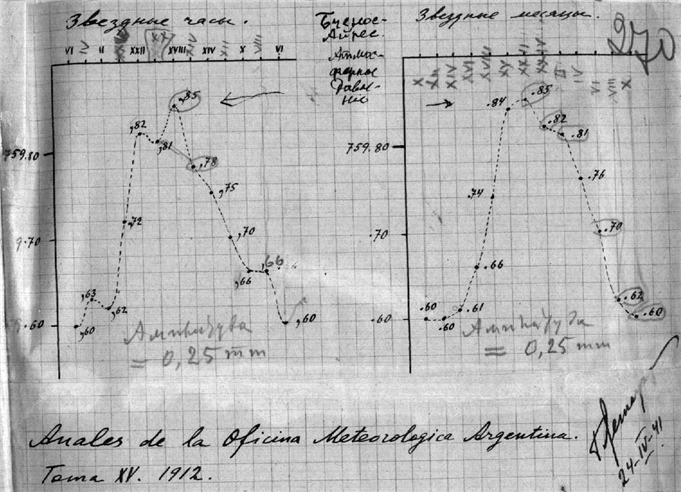 Звездные часы.
Буенос-Айрес.
Атмосферное
Звездные месяцы.
270
VI IV II XXII XVIII XIV XII X VIII VI
X XII XIV XVI XVIII XX XXII XXIV II IV VI VIII X
759.80
9.70
.60
,60 ,63 ,62 ,72 ,82 ,81 ,85 ,78 ,75 ,70 ,66 ,66 ,60
Амплитуда
= 0,25 mm
759.80
.70
.60
.60 .60 .61 .66 .74 .84 .85 .82 .81 .76 .70 .62 .60
Амплитуда
= 0,25 mm
24-IV-41
Anales de la Oficina Meteorologica Argentina.
Tomo XV. 1912.